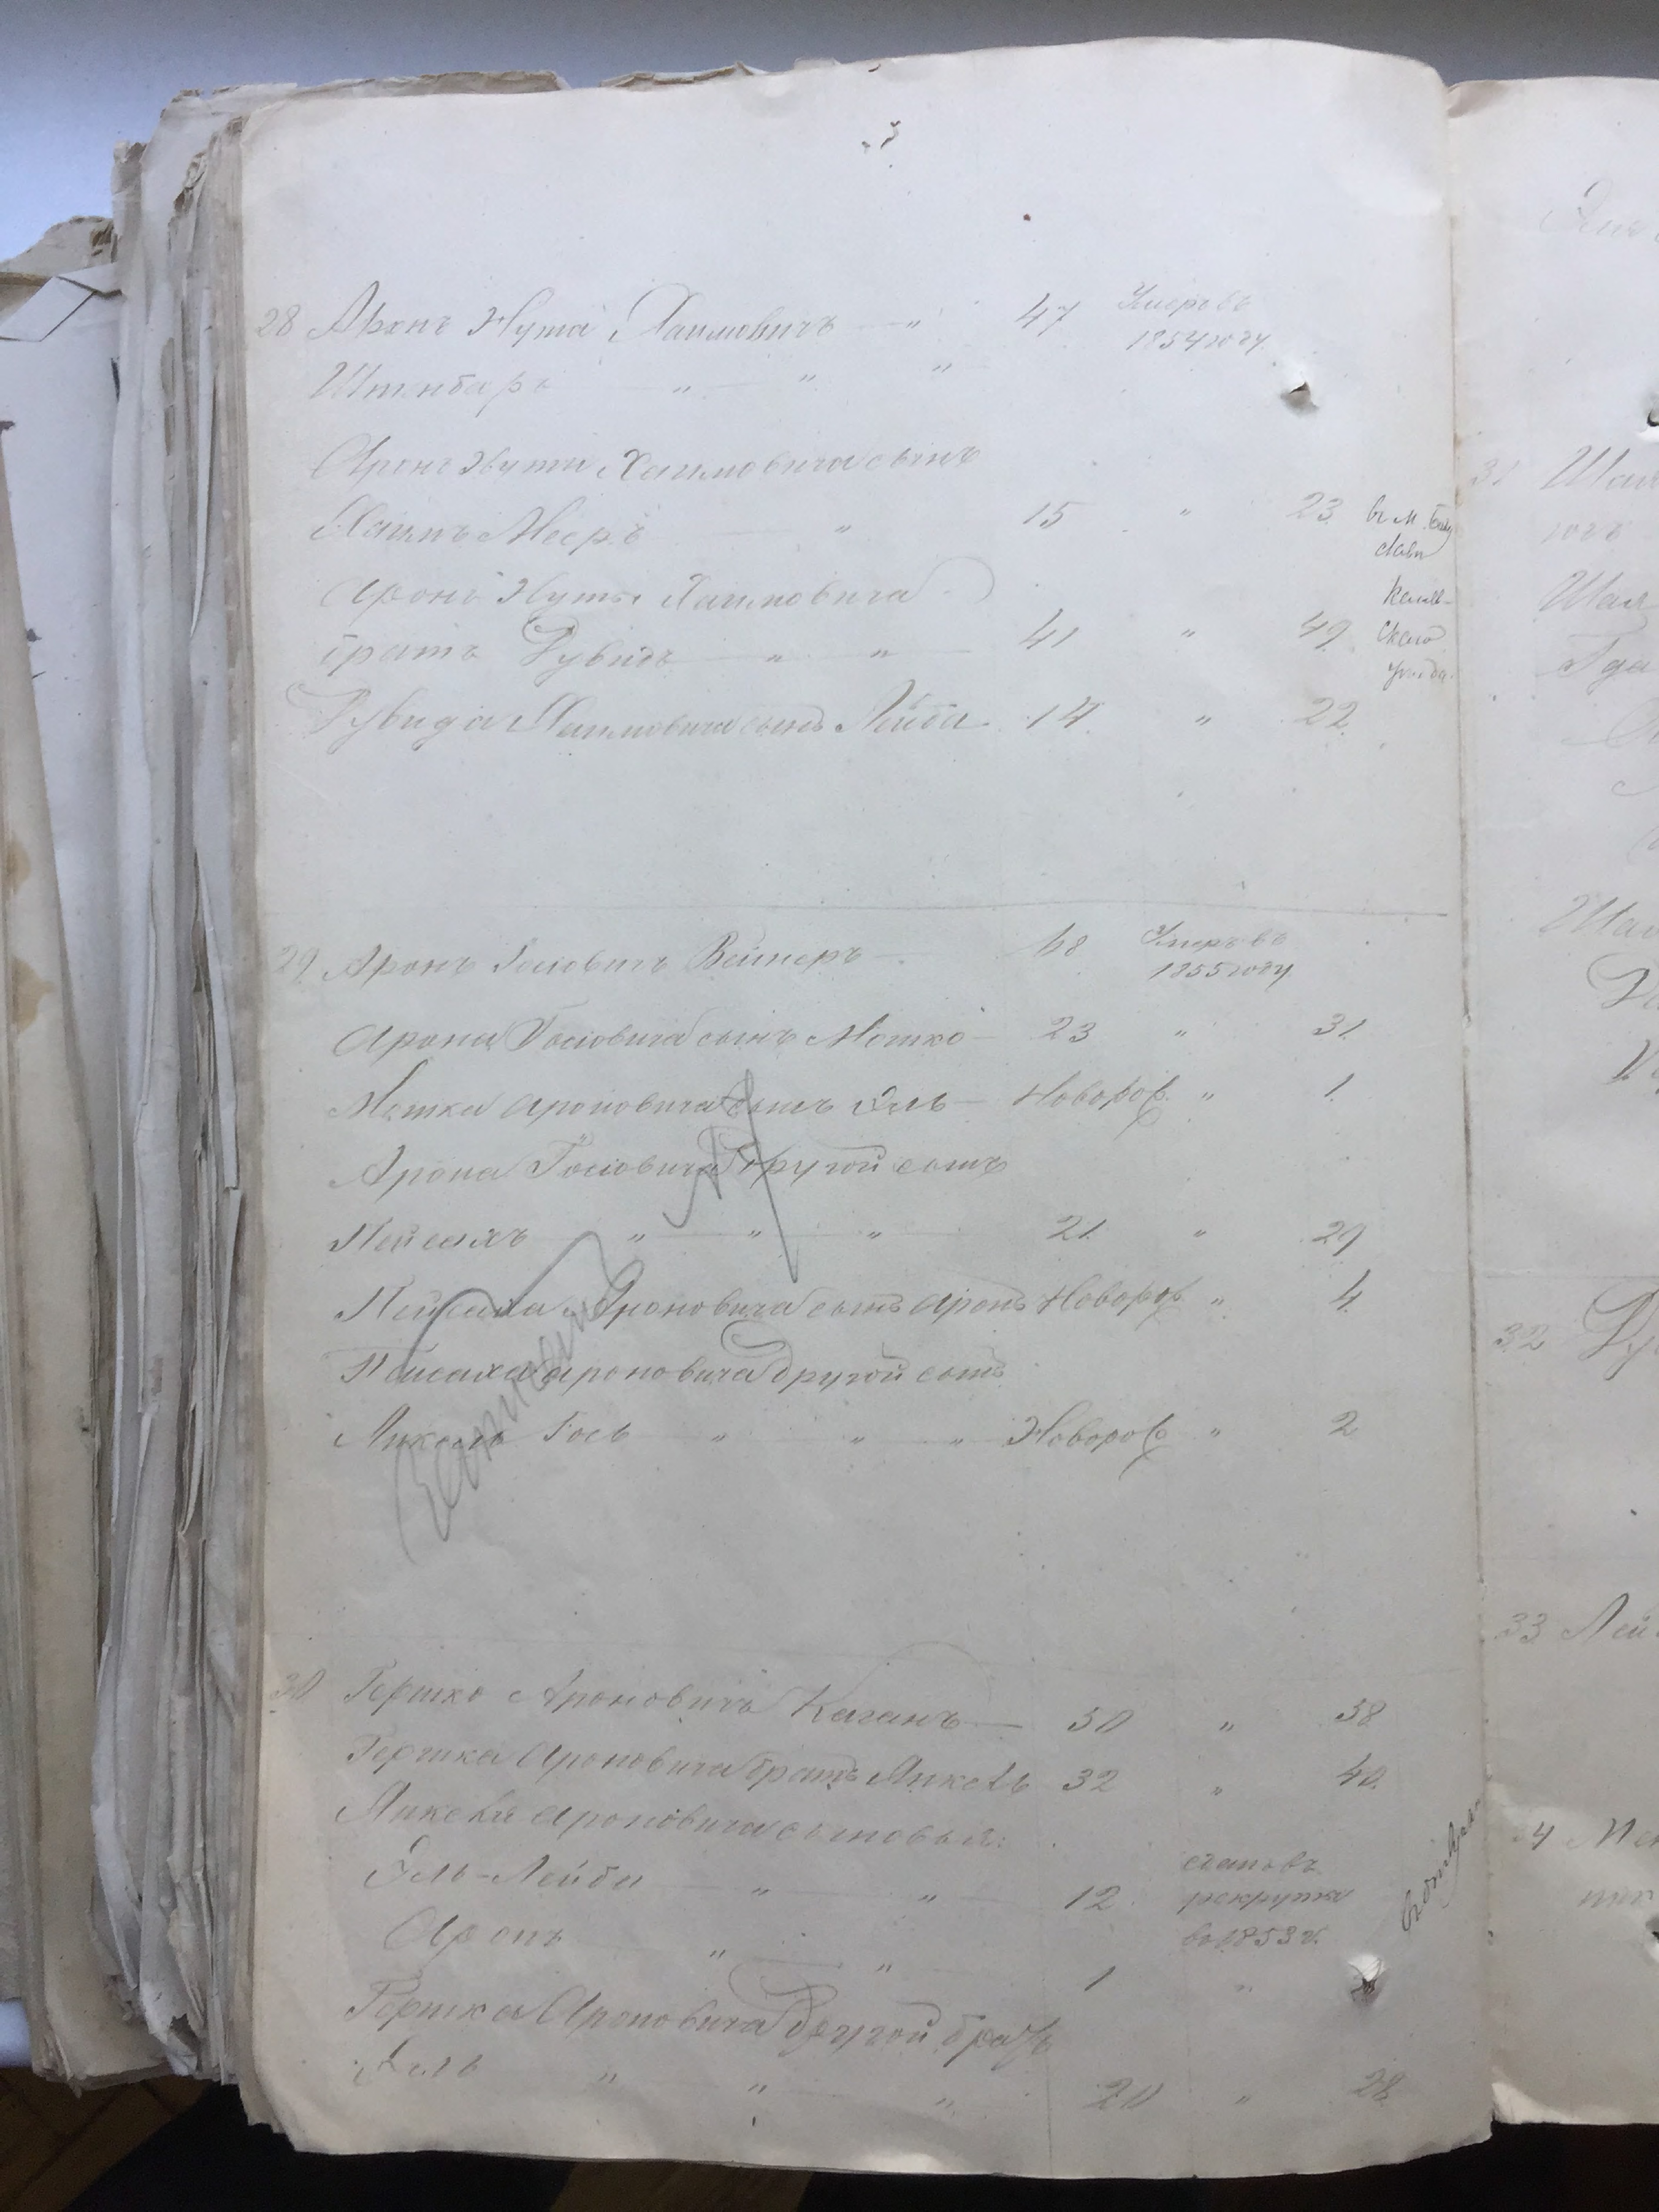 28 Аронъ Нута Хаимовичъ — " 47 Умеръ въ
1854 году.
Штенбаръ — " — " — "
Аронъ Нути Хаимовича сынъ
Хаимъ Мееръ — " 15 " 23 въ м.
Аронъ Нуты Хаимовича
братъ Дувидъ — " — " — 41 " 49 ского
уезда.
Дувида Хаимовича сынъ Лейба 14 " 22.
29 Аронъ Іосіовичъ Вейнеръ — 68 Умеръ въ
1855 году.
Арона Іосіовича сынъ Мошко — 23 " 31.
Мошка Ароновича сынъ Эль — Новорож. " 1.
Арона Іосіовича другой сынъ
Пейсахъ " — " — " 21. " 29
Пейсаха Ароновича сынъ Аронъ Новорож " 4.
Пейсаха Ароновича другой сынъ
Янкель Іось " " " Новорож " 2
30 Гершко Ароновичъ Каганъ — 50 " 58
Гершка Ароновича братъ Янкель 32 " 40.
Янкеля Ароновича сыновья:
Эль-Лейба — " — " — 12 сданъ въ
рекруты
въ 1853 г.
Аронъ " — " — 1 "
Гершка Ароновича другой братъ
Эль " " " 20 " 28
31
32
33 Лей